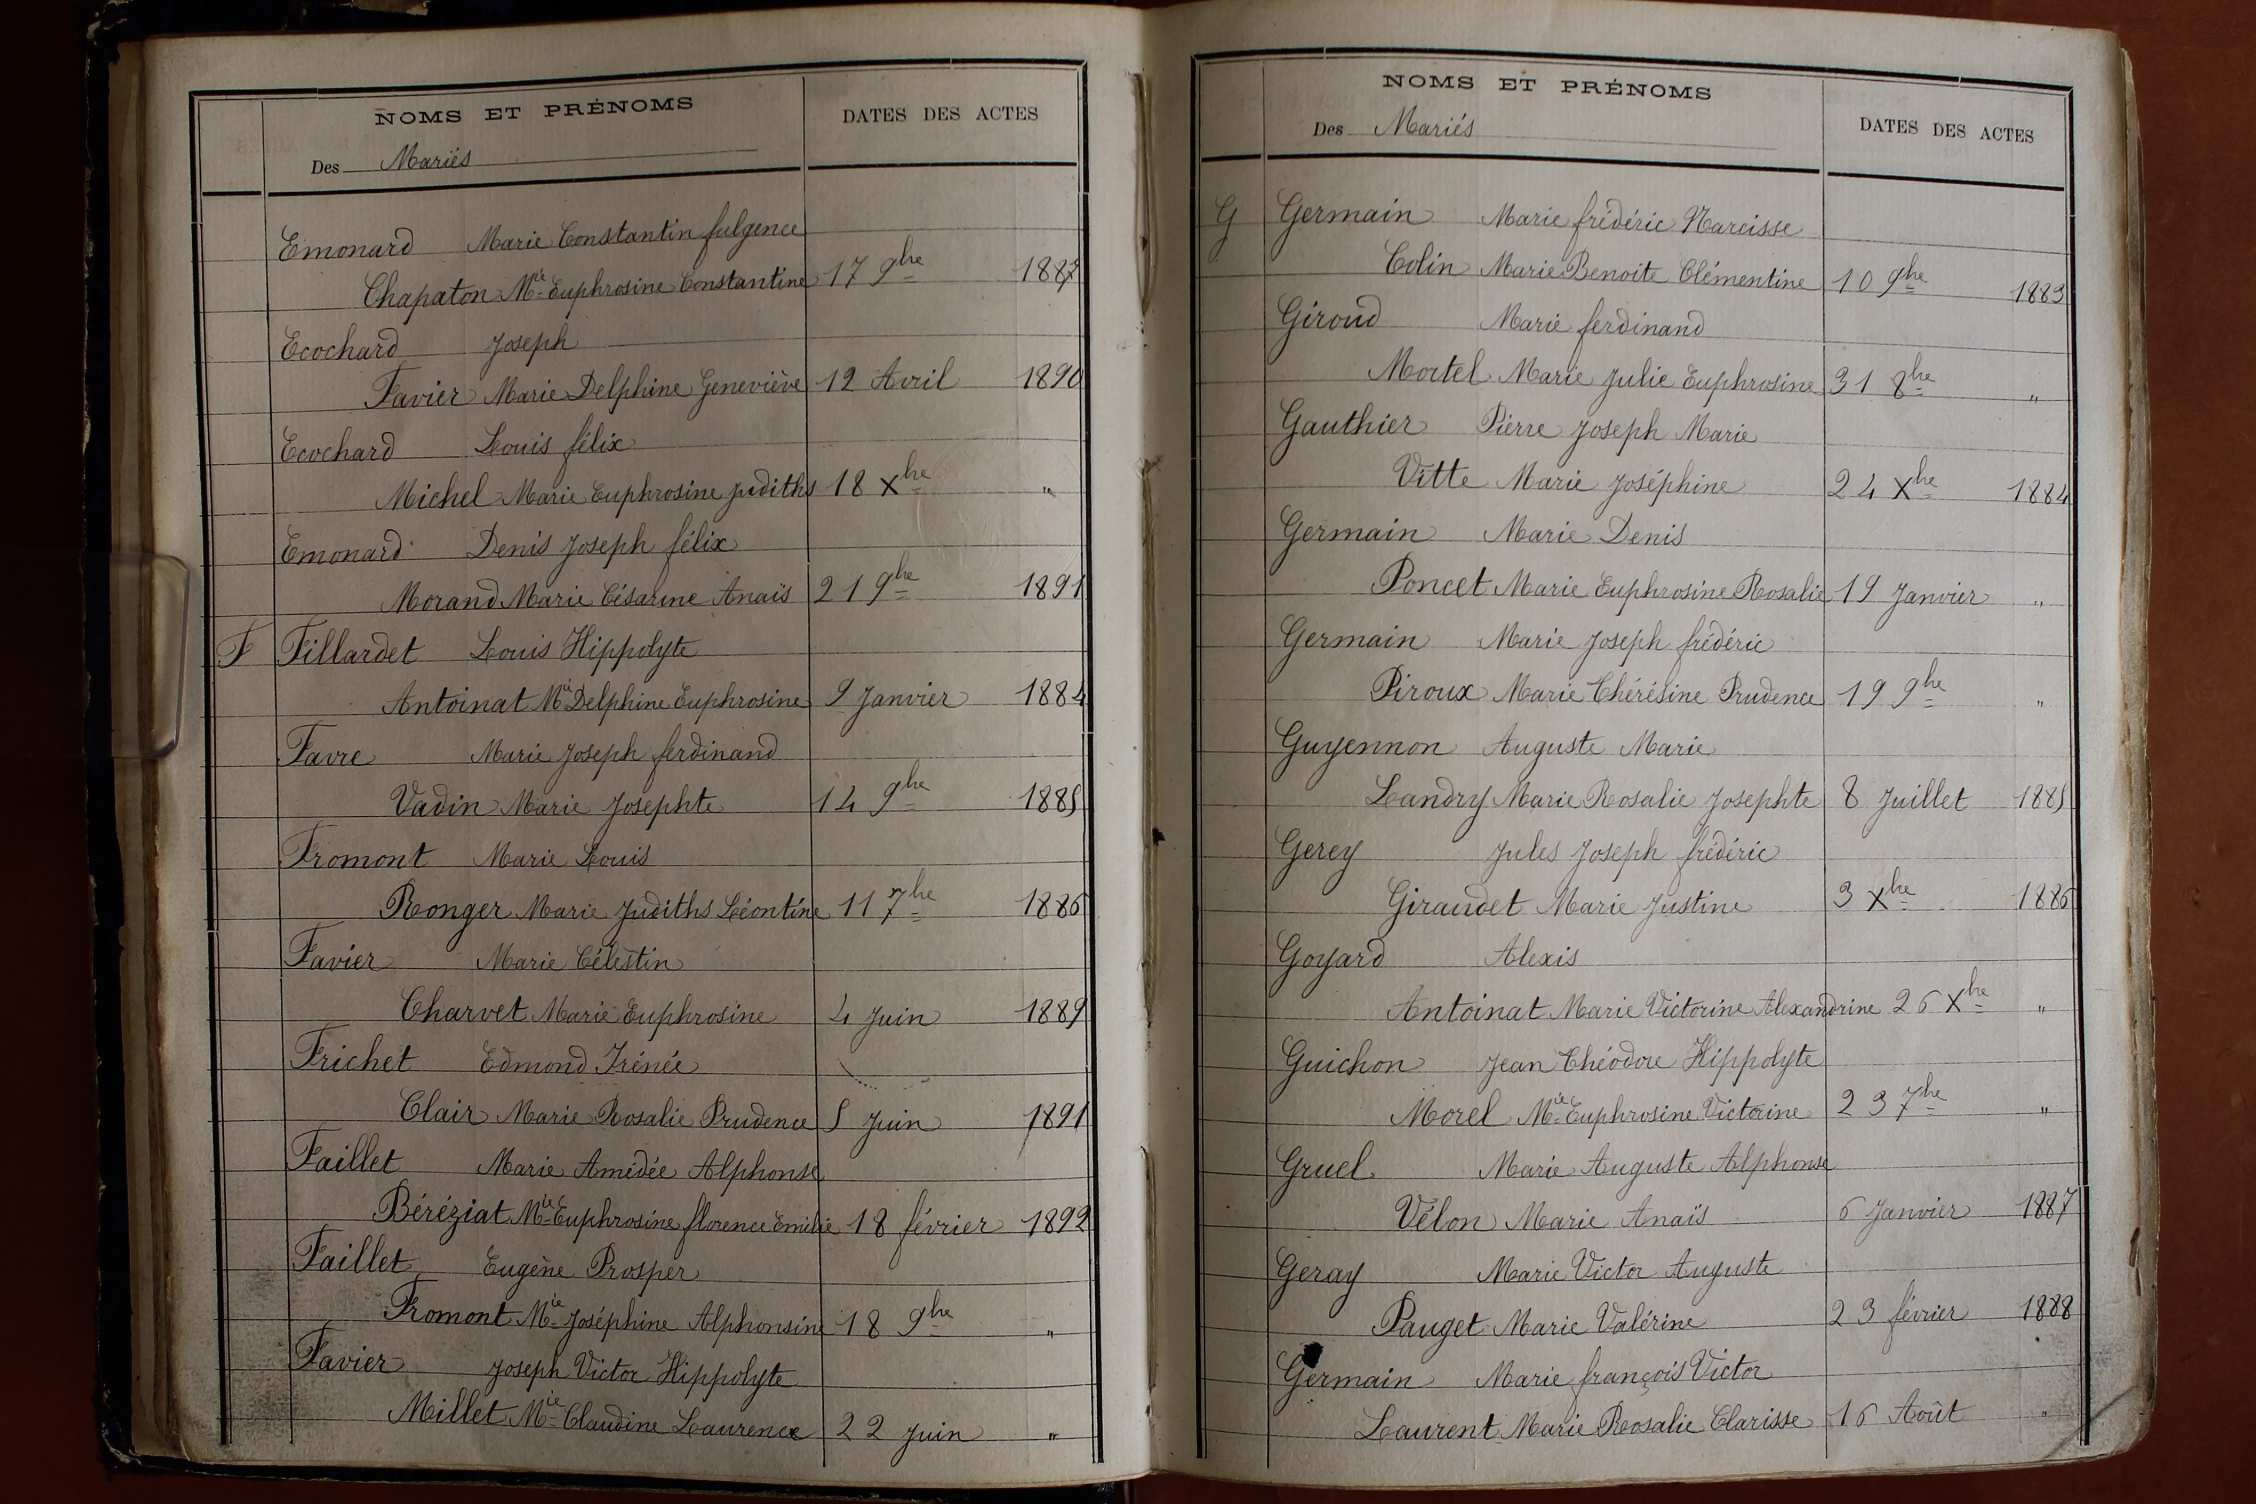 NOMS ET PRÉNOMS
DATES DES ACTES
Des Mariés
Emonard Marie Constantin fulgence
Chapaton Mie Euphrosine Constantine 17 9bre 1887
Ecochard Joseph
Favier Marie Delphine Geneviève 12 Avril 1890
Ecochard Louis félix
Michel Marie Euphrosine Judiths 18 Xbre "
Emonard Denis Joseph félix
Morand Marie Césarine Anaïs 21 9bre 1891
F Fillardet Louis Hippolyte
Antoinat Mie Delphine Euphrosine 9 Janvier 1884
Favre Marie Joseph ferdinand
Vadin Marie Josephte 14 9bre 1885
Fromont Marie Louis
Ronger Marie Judiths Léontine 11 7bre 1886
Favier Marie Célestin
Charvet Marie Euphrosine 4 Juin 1889
Frichet Edmond Irénée
Clair Marie Rosalie Prudence 5 Juin 1891
Faillet Marie Amédée Alphonse
Béréziat Mie Euphrosine florence Emilie 18 février 1892
Faillet Eugène Prosper
Fromont Mie Joséphine Alphonsine 18 9bre "
Favier Joseph Victor Hippolyte
Millet Mie Claudine Laurence 22 Juin "
NOMS ET PRÉNOMS
DATES DES ACTES
Des Mariés
G Germain Marie frédéric Narcisse
Colin Marie Benoite Clémentine 10 9bre 1883
Giroud Marie ferdinand
Mortel Marie Julie Euphrosine 31 8bre "
Gauthier Pierre Joseph Marie
Vitte Marie Joséphine 24 Xbre 1884
Germain Marie Denis
Poncet Marie Euphrosine Rosalie 19 Janvier "
Germain Marie Joseph frédéric
Piroux Marie Thérésine Prudence 19 9bre "
Guyennon Auguste Marie
Landry Marie Rosalie Josephte 8 Juillet 1885
Gerey Jules Joseph frédéric
Giraudet Marie Justine 3 Xbre 1886
Goyard Alexis
Antoinat Marie Victorine Alexandrine 26 Xbre "
Guichon Jean Théodore Hippolyte
Morel Mie Euphrosine Victorine 23 7bre "
Gruel Marie Auguste Alphonse
Vélon Marie Anaïs 6 Janvier 1887
Geray Marie Victor Auguste
Pauget Marie Valérine 23 février 1888
Germain Marie françois Victor
Laurent Marie Rosalie Clarisse 16 Août "